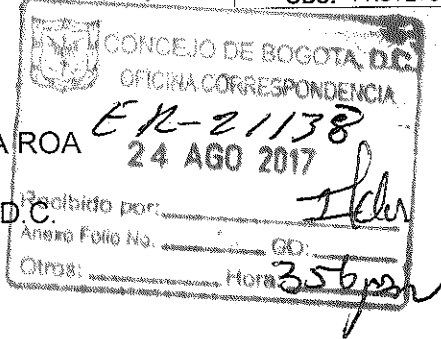 CONCEJO DE BOGOTA, D.C.
OFICINA CORRESPONDENCIA
ER-21138
ROA
24 AGO 2017
Recibido por:
D.C.
Anexo Folio No. GD:
Otros: Hora 3:56 pm